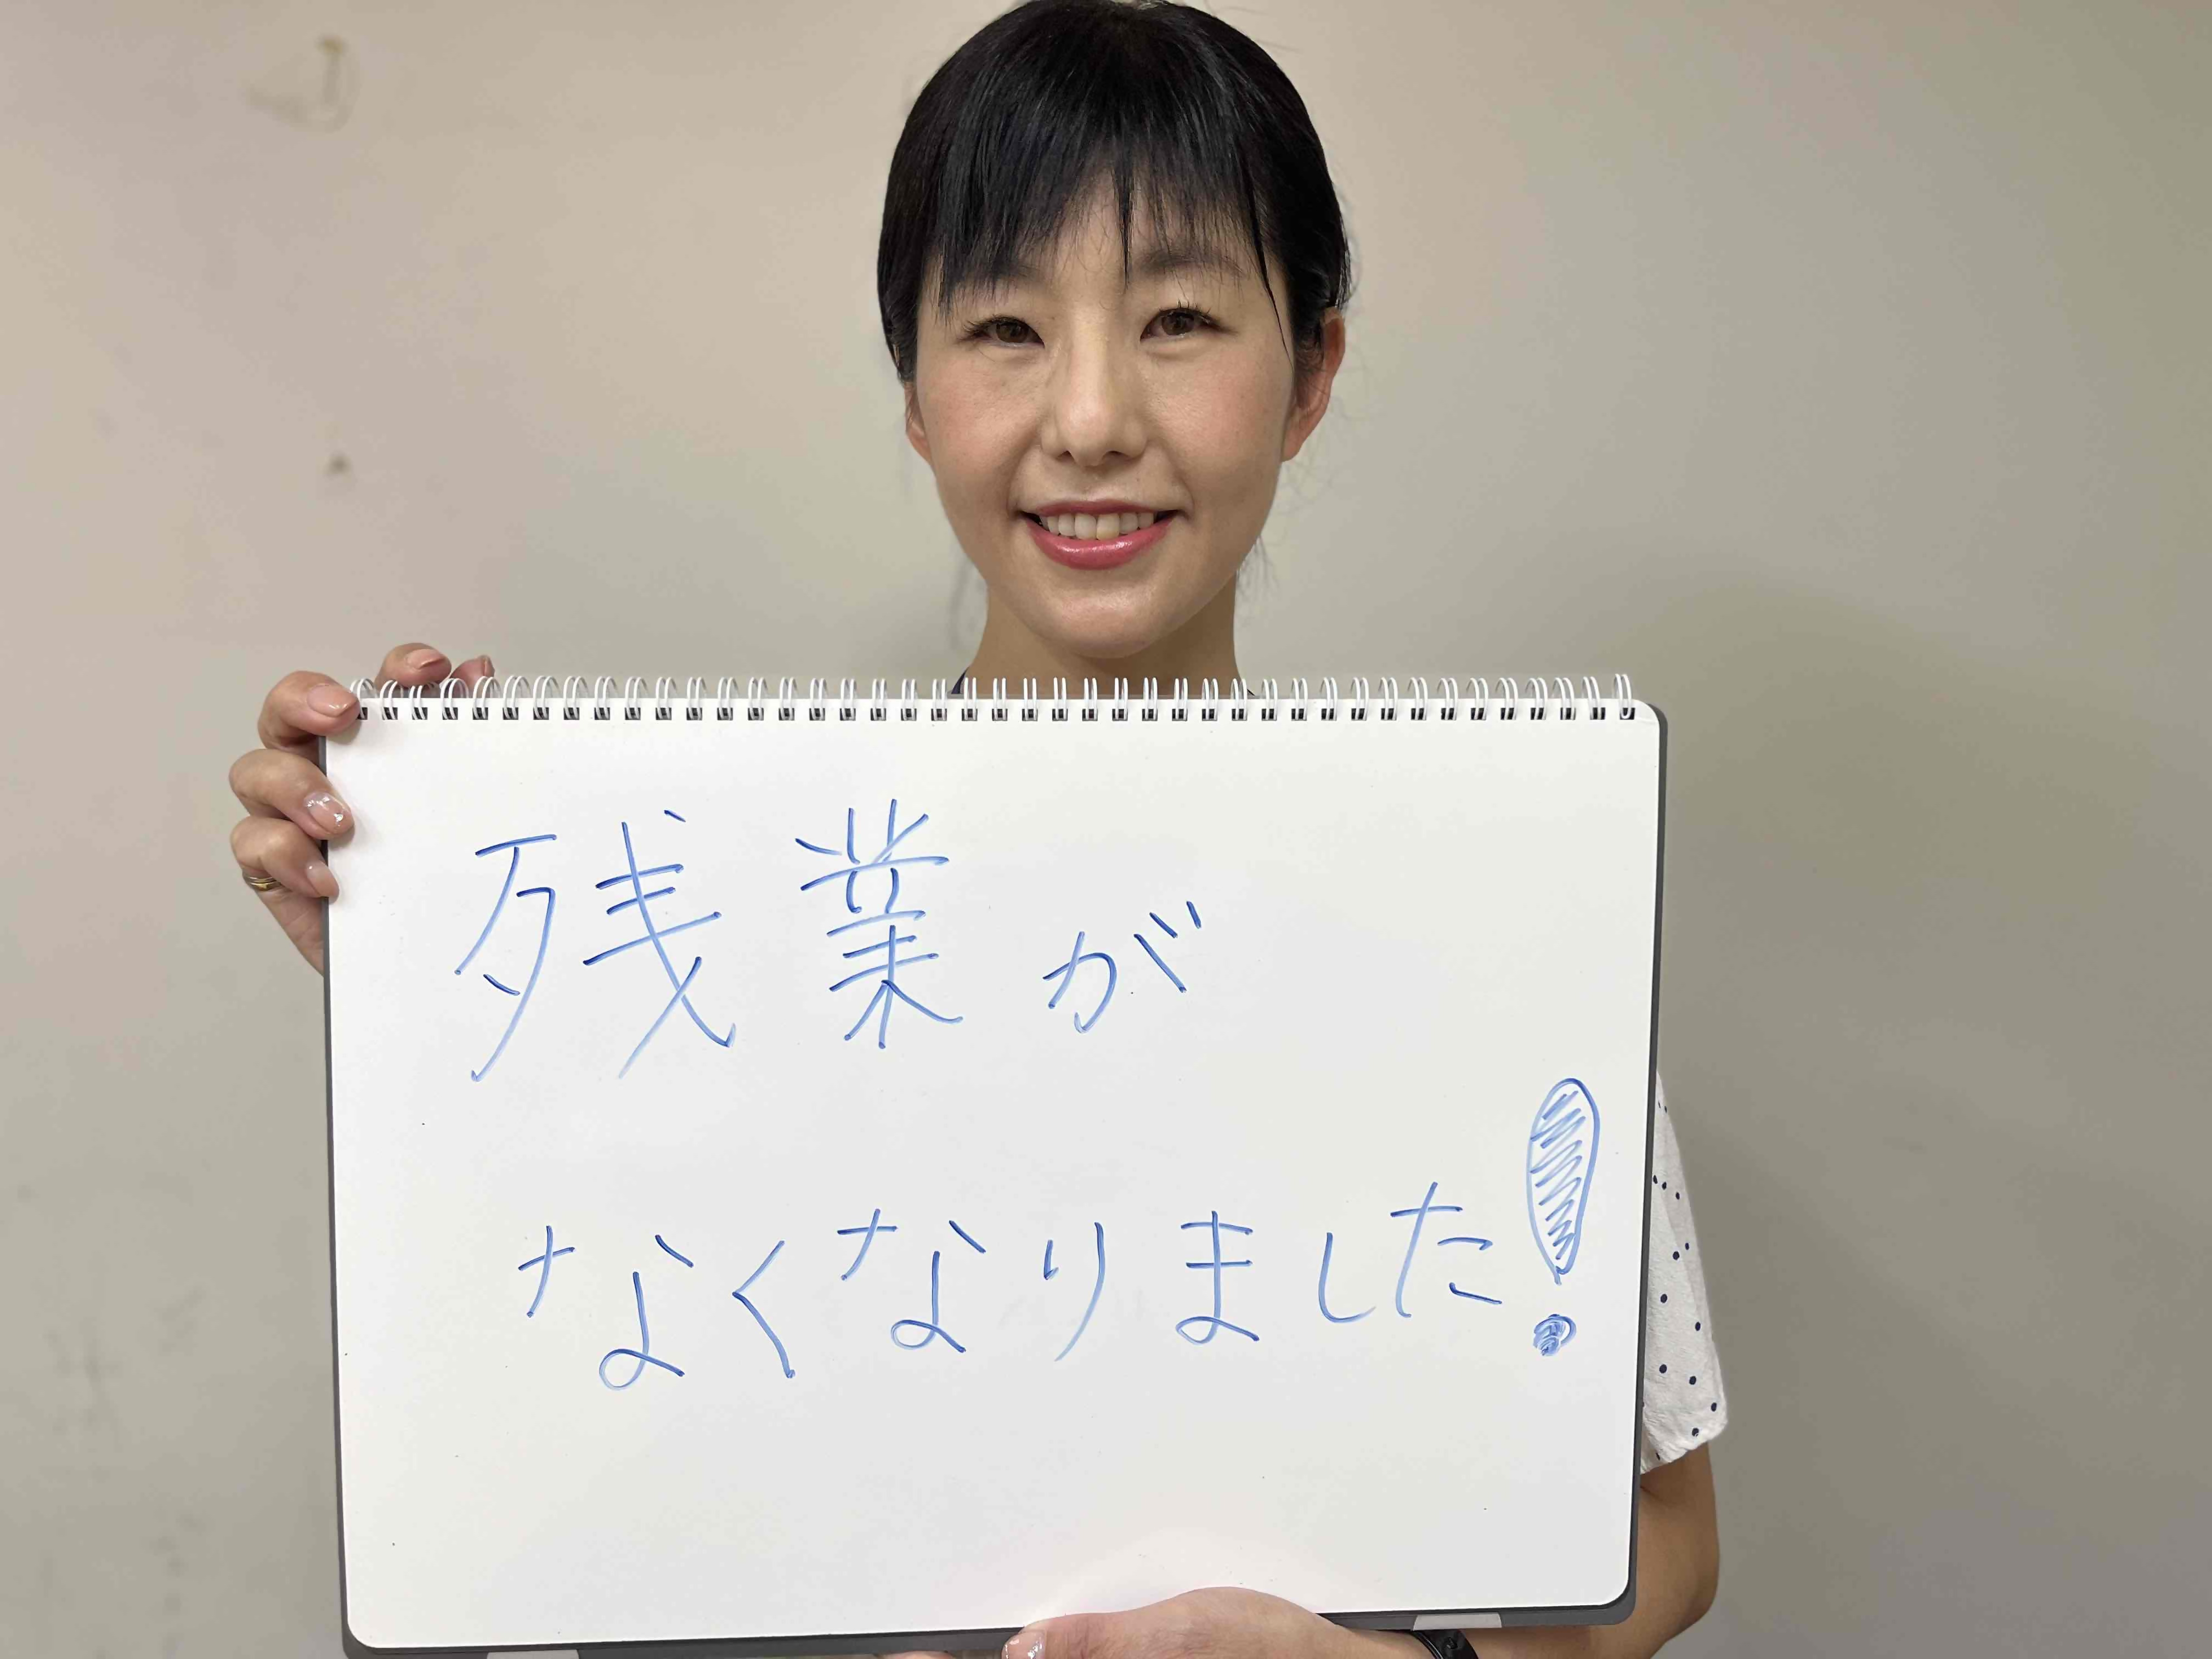 残業が
なくなりました!